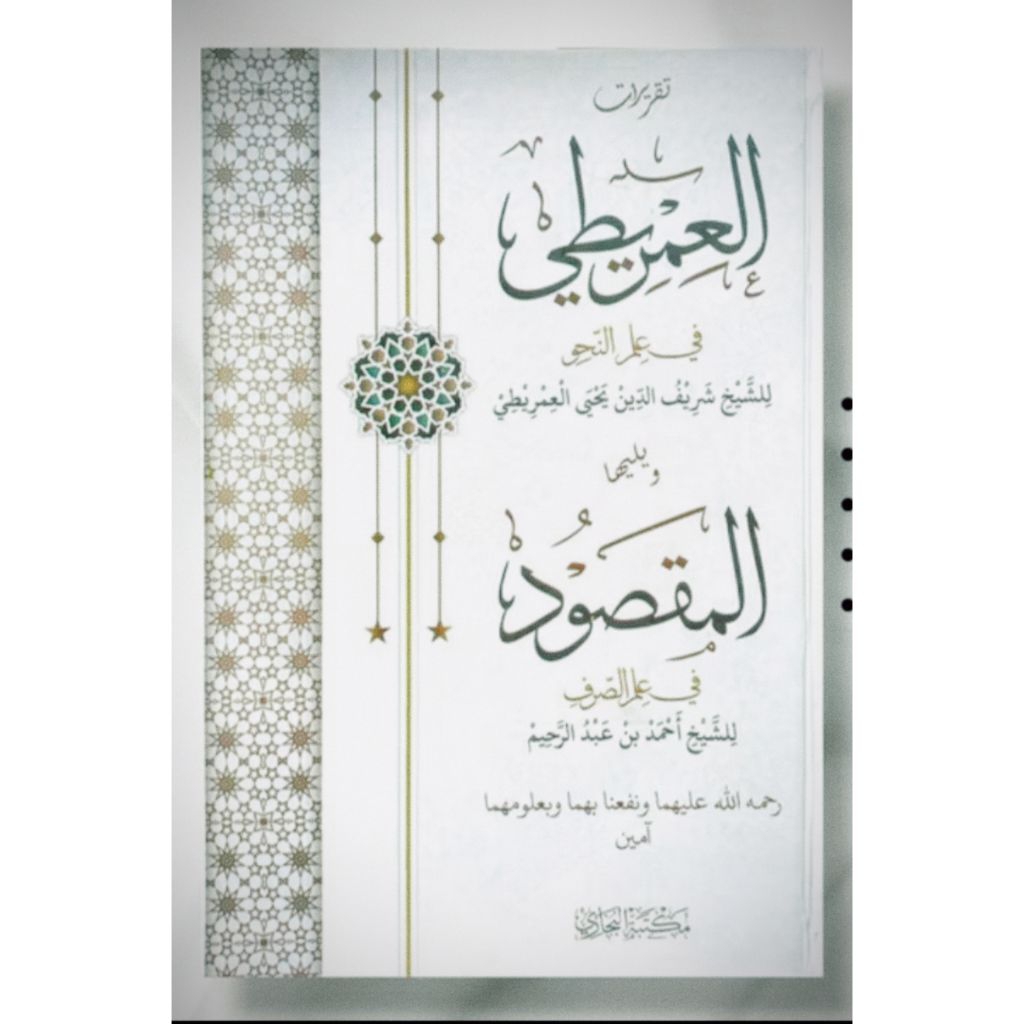 تقريرات
العِمْرِيطي
في عِلم النّحو
لِلشَّيْخِ شَرِيْفُ الدِّيْنْ يَحْيَى الْعِمْرِيْطِيْ
ويليها
المقصُود
في عِلم الصّرفِ
لِلشَّيْخِ أَحْمَدْ بنْ عَبْدُ الرَّحِيمْ
رحمه الله عليهما ونفعنا بهما وبعلومهما
آمين
مكتبة البخاري